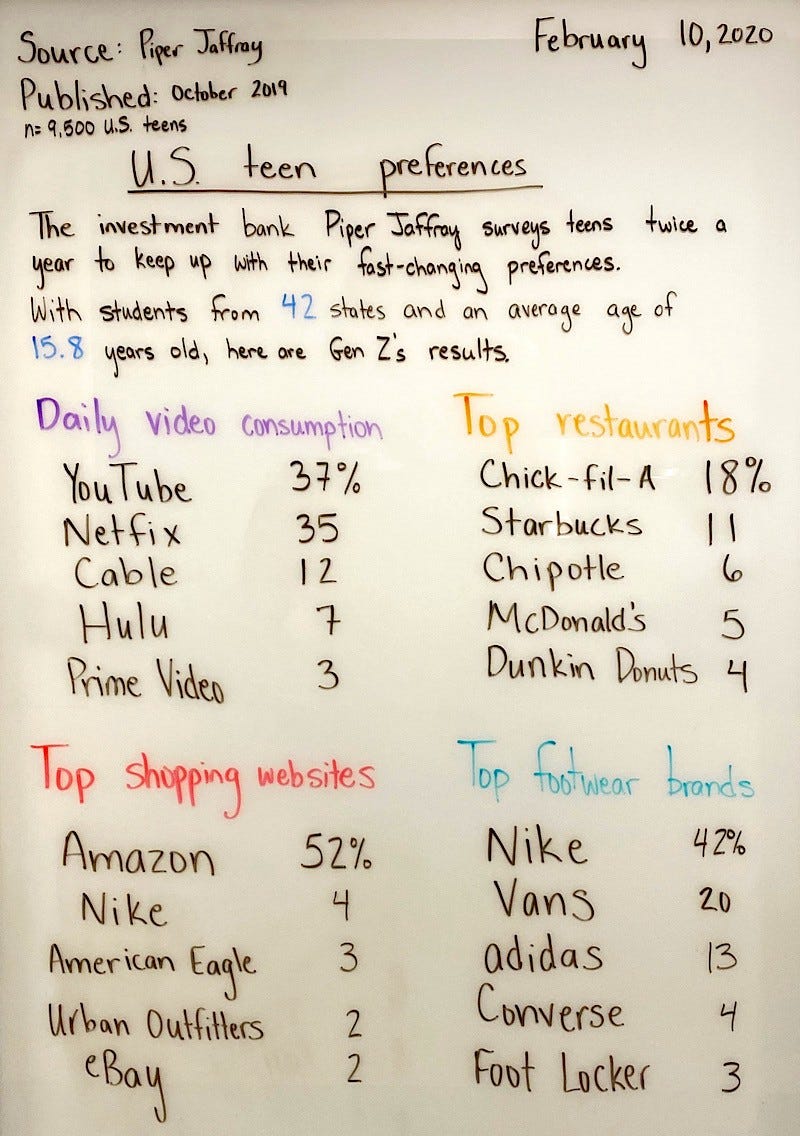 Source: Piper Jaffray
February 10, 2020
Published: October 2019
n= 9,500 U.S. teens
U.S. teen preferences
The investment bank Piper Jaffray surveys teens twice a
year to keep up with their fast-changing preferences.
With students from 42 states and an average age of
15.8 years old, here are Gen Z's results.
Daily video consumption
YouTube 37%
Netfix 35
Cable 12
Hulu 7
Prime Video 3
Top restaurants
Chick-fil-A 18%
Starbucks 11
Chipotle 6
McDonald's 5
Dunkin Donuts 4
Top shopping websites
Amazon 52%
Nike 4
American Eagle 3
Urban Outfitters 2
eBay 2
Top footwear brands
Nike 42%
Vans 20
adidas 13
Converse 4
Foot Locker 3